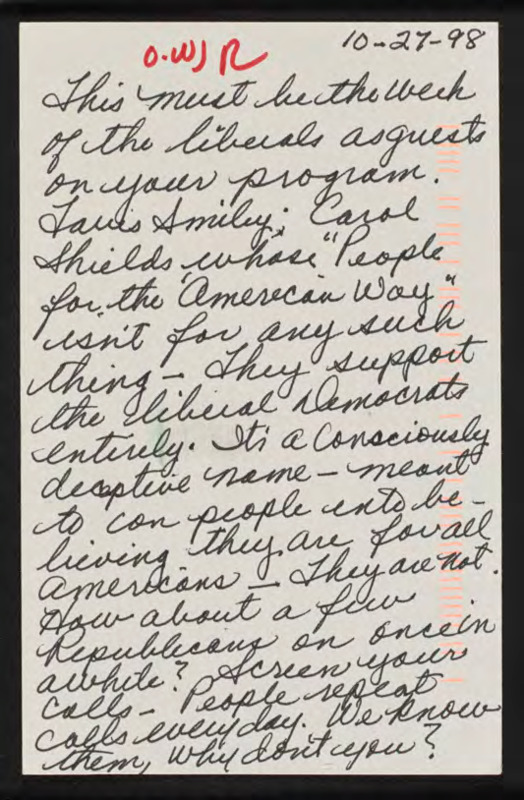 10-27-98
O.WJ R
This must be the week
of the liberals as guests
on your program.
Tavis Smiley; Carol
Shields whose "People
for the American Way"
isn't for any such
thing - They support
the liberal Democrats
entirely. It's a consciously
deceptive name - meant
to con people into be-
lieving they are for all
Americans - They are not.
How about a few
Republicans on once in
awhile? Screen your
calls - People repeat
calls everyday. We know
them, why don't you?